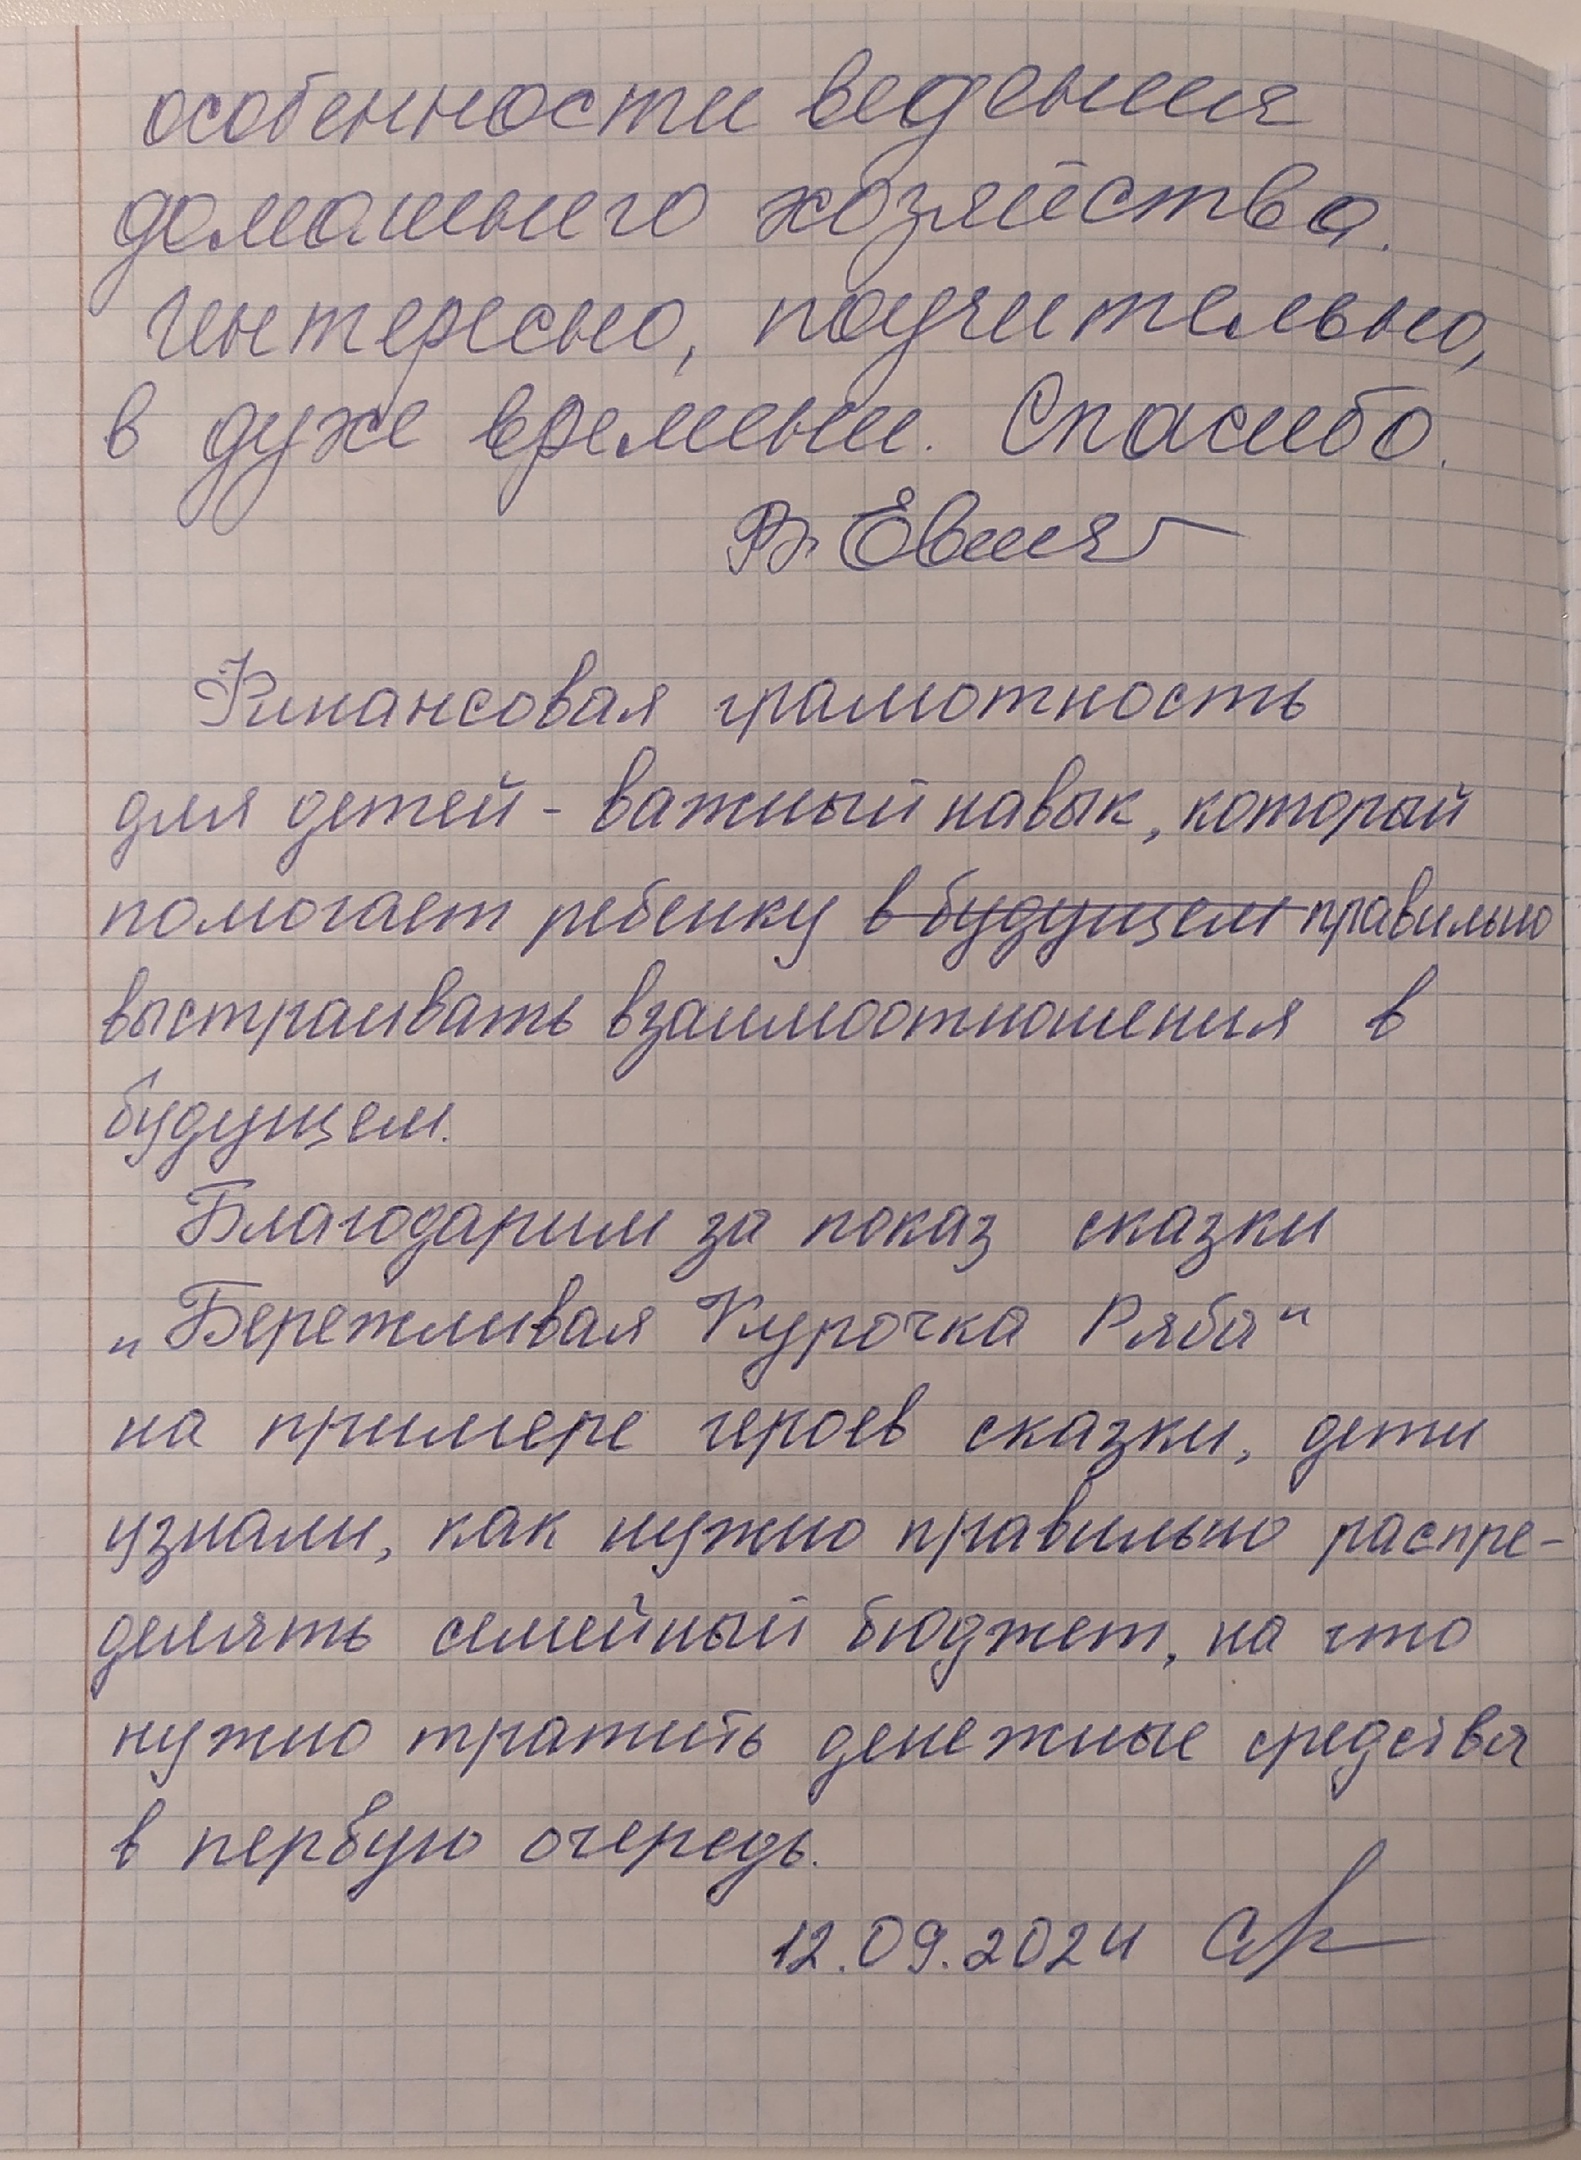 особенности ведения
домашнего хозяйства.
Интересно, поучительно,
в духе времени. Спасибо.
Финансовая грамотность
для детей - важный навык, который
помогает ребенку в будущем правильно
выстраивать взаимоотношения в
будущем.
Благодарим за показ сказки
„Бережливая Курочка Ряба“
на примере героев сказки, дети
узнали, как нужно правильно распре-
делять семейный бюджет, на что
нужно тратить денежные средства
в первую очередь.
12.09.2024